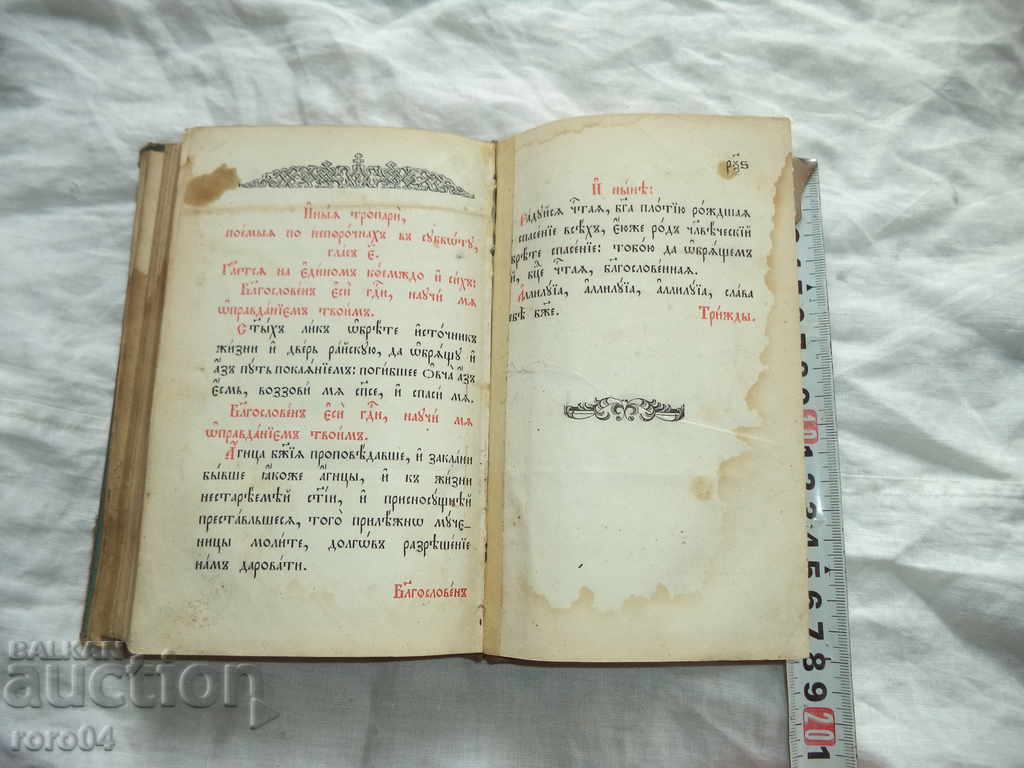 И҆ны́ѧ тропари̑,
пое́мыѧ по непоро́чнахъ въ сꙋббѡ́тꙋ,
гла́съ є҃.
Гл҃етсѧ на є҆ди́номъ ко́емждо и҆ си́хъ:
Бл҃гослове́нъ є҆сѝ гд҇и, наꙋчи́ мѧ
ѡ҆правда́нїємъ твои̑мъ.
Ст҃ы́хъ ли́къ ѡ҆брѣ́те и҆сто́чникъ
жи́зни и҆ две́рь ра́йскꙋю, да ѡ҆брѧ́щꙋ и҆
а҆́зъ пꙋ́ть покаѧ́нїемъ: поги́бшее ѻ҆вча̀ а҆́зъ
є҆́смь, воззови́ мѧ сп҃се, и҆ спаси́ мѧ.
Бл҃гослове́нъ є҆сѝ гд҇и, наꙋчи́ мѧ
ѡ҆правда́нїємъ твои̑мъ.
А҆́гнца бж҃їѧ проповѣ́давше, и҆ закла́ни
бы́вше ꙗ҆́коже а҆́гнцы, и҆ къ жи́зни
нестарѣ́емѣй ст҃і́и, и҆ присносꙋ́щнѣй
преста́вльшесѧ, того̀ прилѣ́жнѡ мꙋ́че-
ницы моли́те, долгѡ́въ разрѣше́нїе
на́мъ дарова́ти.
Бл҃гослове́нъ
рѯ҃ѕ
И҆ ны́нѣ:
Ра́дꙋйсѧ чⷭ҇таѧ, бг҃а пло́тїю ро́ждшаѧ
спасе́нїе всѣ́хъ, є҆́юже ро́дъ чл҃вѣ́ческїй
брѣ́те спасе́нїе: тобо́ю да ѡ҆брѧ́щемъ
й, бцⷣе чⷭ҇таѧ, бл҃гослове́ннаѧ.
А҆ллилꙋ́їа, а҆ллилꙋ́їа, а҆ллилꙋ́їа, сла́ва
бѣ̀ бж҃е. Три́жды.
10 1 2 3 4 5 6 7 8 9 20 1
BALKAN
auction
roro04